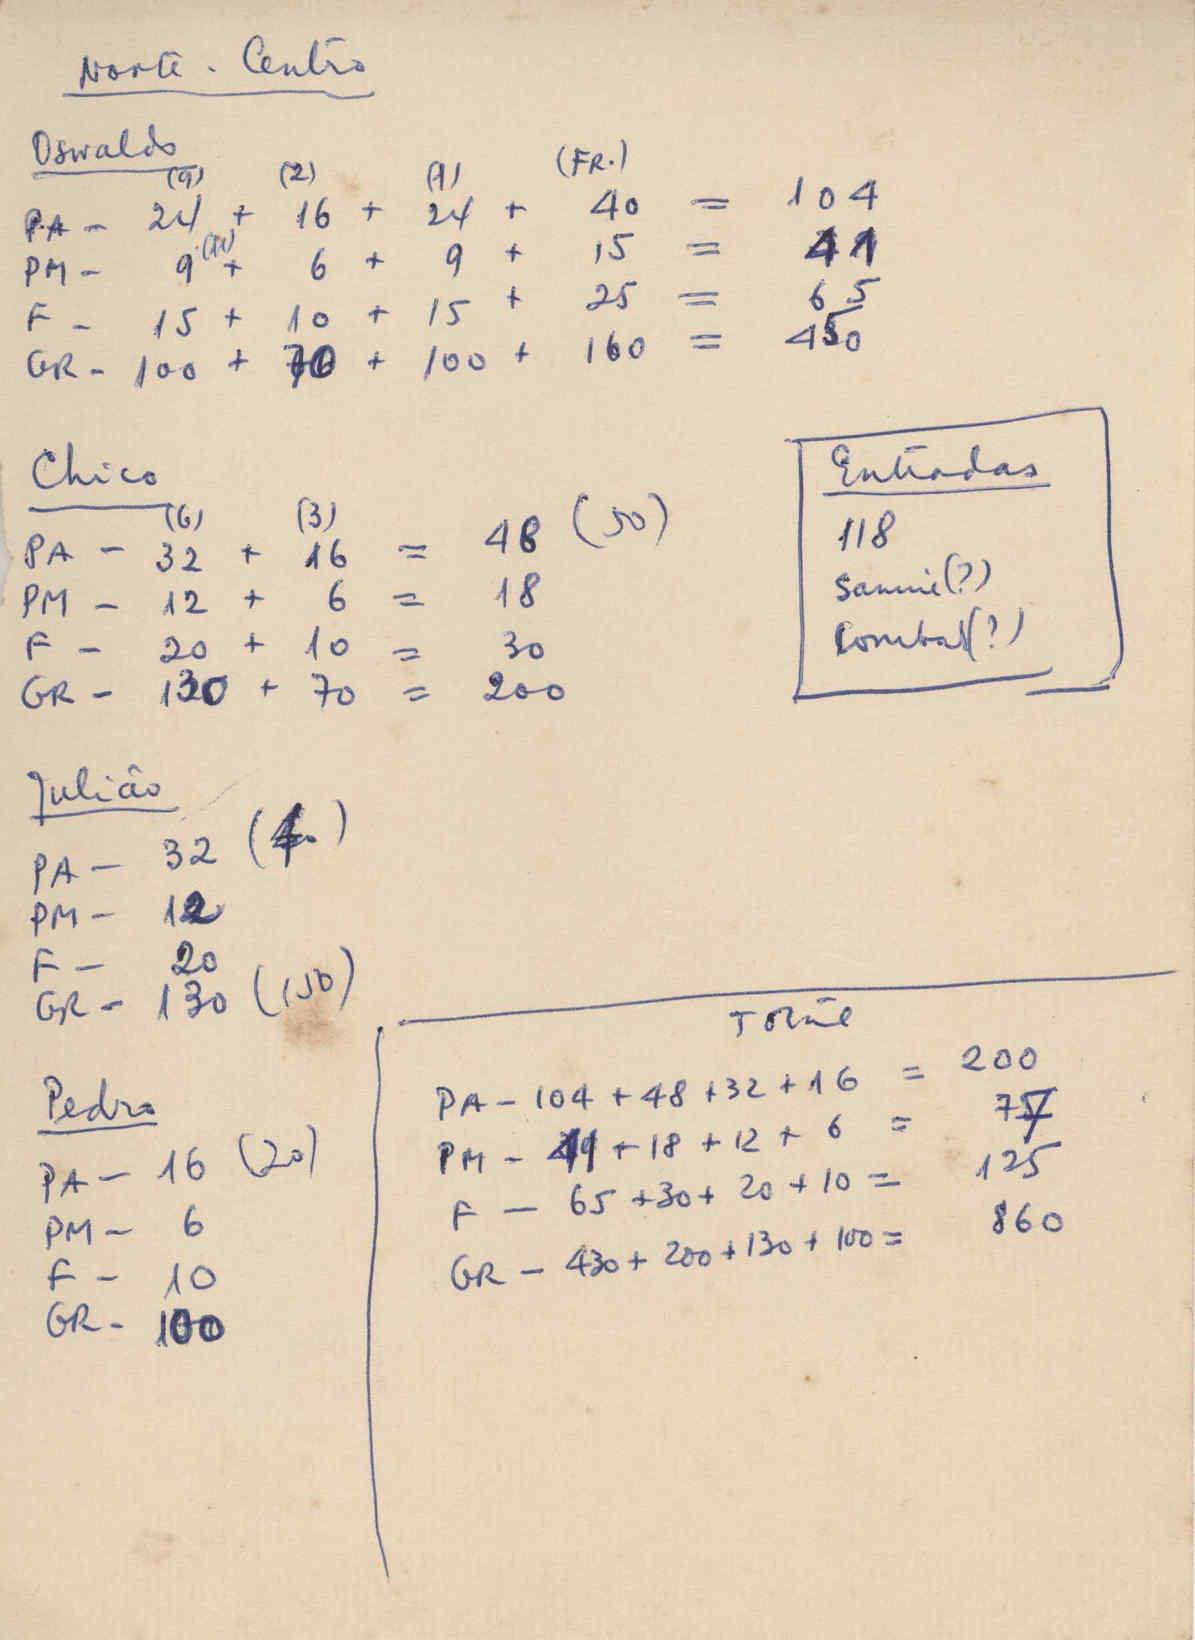 Norte - Centro
Oswaldo
(9) (2) (1) (FR.)
PA - 24 + 16 + 24 + 40 = 104
PM - 9 + 6 + 9 + 15 = 41
F - 15 + 10 + 15 + 25 = 65
GR - 100 + 70 + 100 + 160 = 450
Chico
(6) (3)
PA - 32 + 16 = 48 (50)
PM - 12 + 6 = 18
F - 20 + 10 = 30
GR - 130 + 70 = 200
Entradas
118
(?)
(?)
Julião
PA - 32
PM - 12
F - 20
GR - 130 (150)
Pedro
PA - 16 (20)
PM - 6
F - 10
GR - 100
PA - 104 + 48 + 32 + 16 = 200
PM - 41 + 18 + 12 + 6 = 77
F - 65 + 30 + 20 + 10 = 125
GR - 430 + 200 + 130 + 100 = 860